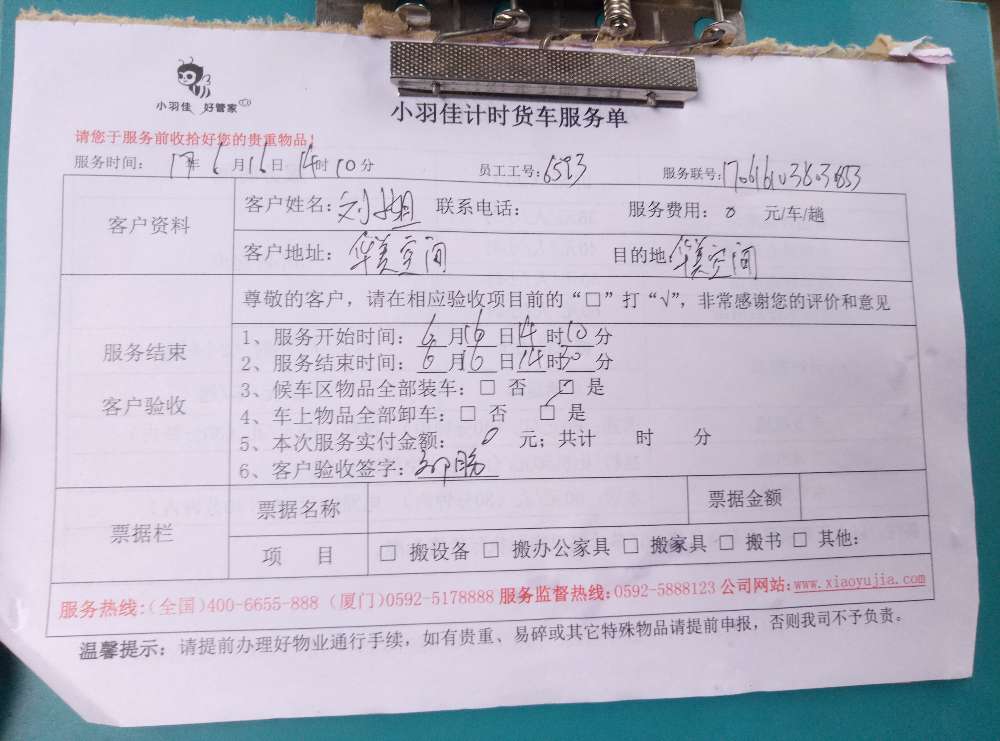 小羽佳 好管家
小羽佳计时货车服务单
请您于服务前收拾好您的贵重物品！
服务时间： 17年 6月16日 14时10分 员工工号：6593 服务联号：
客户资料 客户姓名：刘小姐 联系电话： 服务费用：0 元/车/趟
客户地址：华美空间 目的地：华美空间
服务结束 客户验收
尊敬的客户，请在相应验收项目前的“□”打“√”，非常感谢您的评价和意见
1、服务开始时间：6月16日14时10分
2、服务结束时间：6月16日14时30分
3、候车区物品全部装车：□ 否 ☑ 是
4、车上物品全部卸车：□ 否 ☑ 是
5、本次服务实付金额： 0 元；共计 时 分
6、客户验收签字：
票据栏 票据名称 票据金额
项 目 □ 搬设备 □ 搬办公家具 □ 搬家具 □ 搬书 □ 其他：
服务热线：(全国)400-6655-888 (厦门)0592-5178888 服务监督热线：0592-5888123 公司网站：www.xiaoyujia.com
温馨提示：请提前办理好物业通行手续，如有贵重、易碎或其它特殊物品请提前申报，否则我司不予负责。